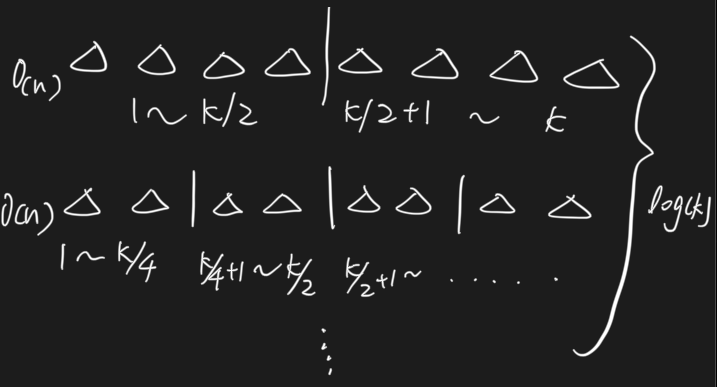 O(n)
1 ~ k/2 k/2+1 ~ k
O(n)
1 ~ k/4 k/4+1 ~ k/2 k/2+1 ~ . . . . .
log(k)